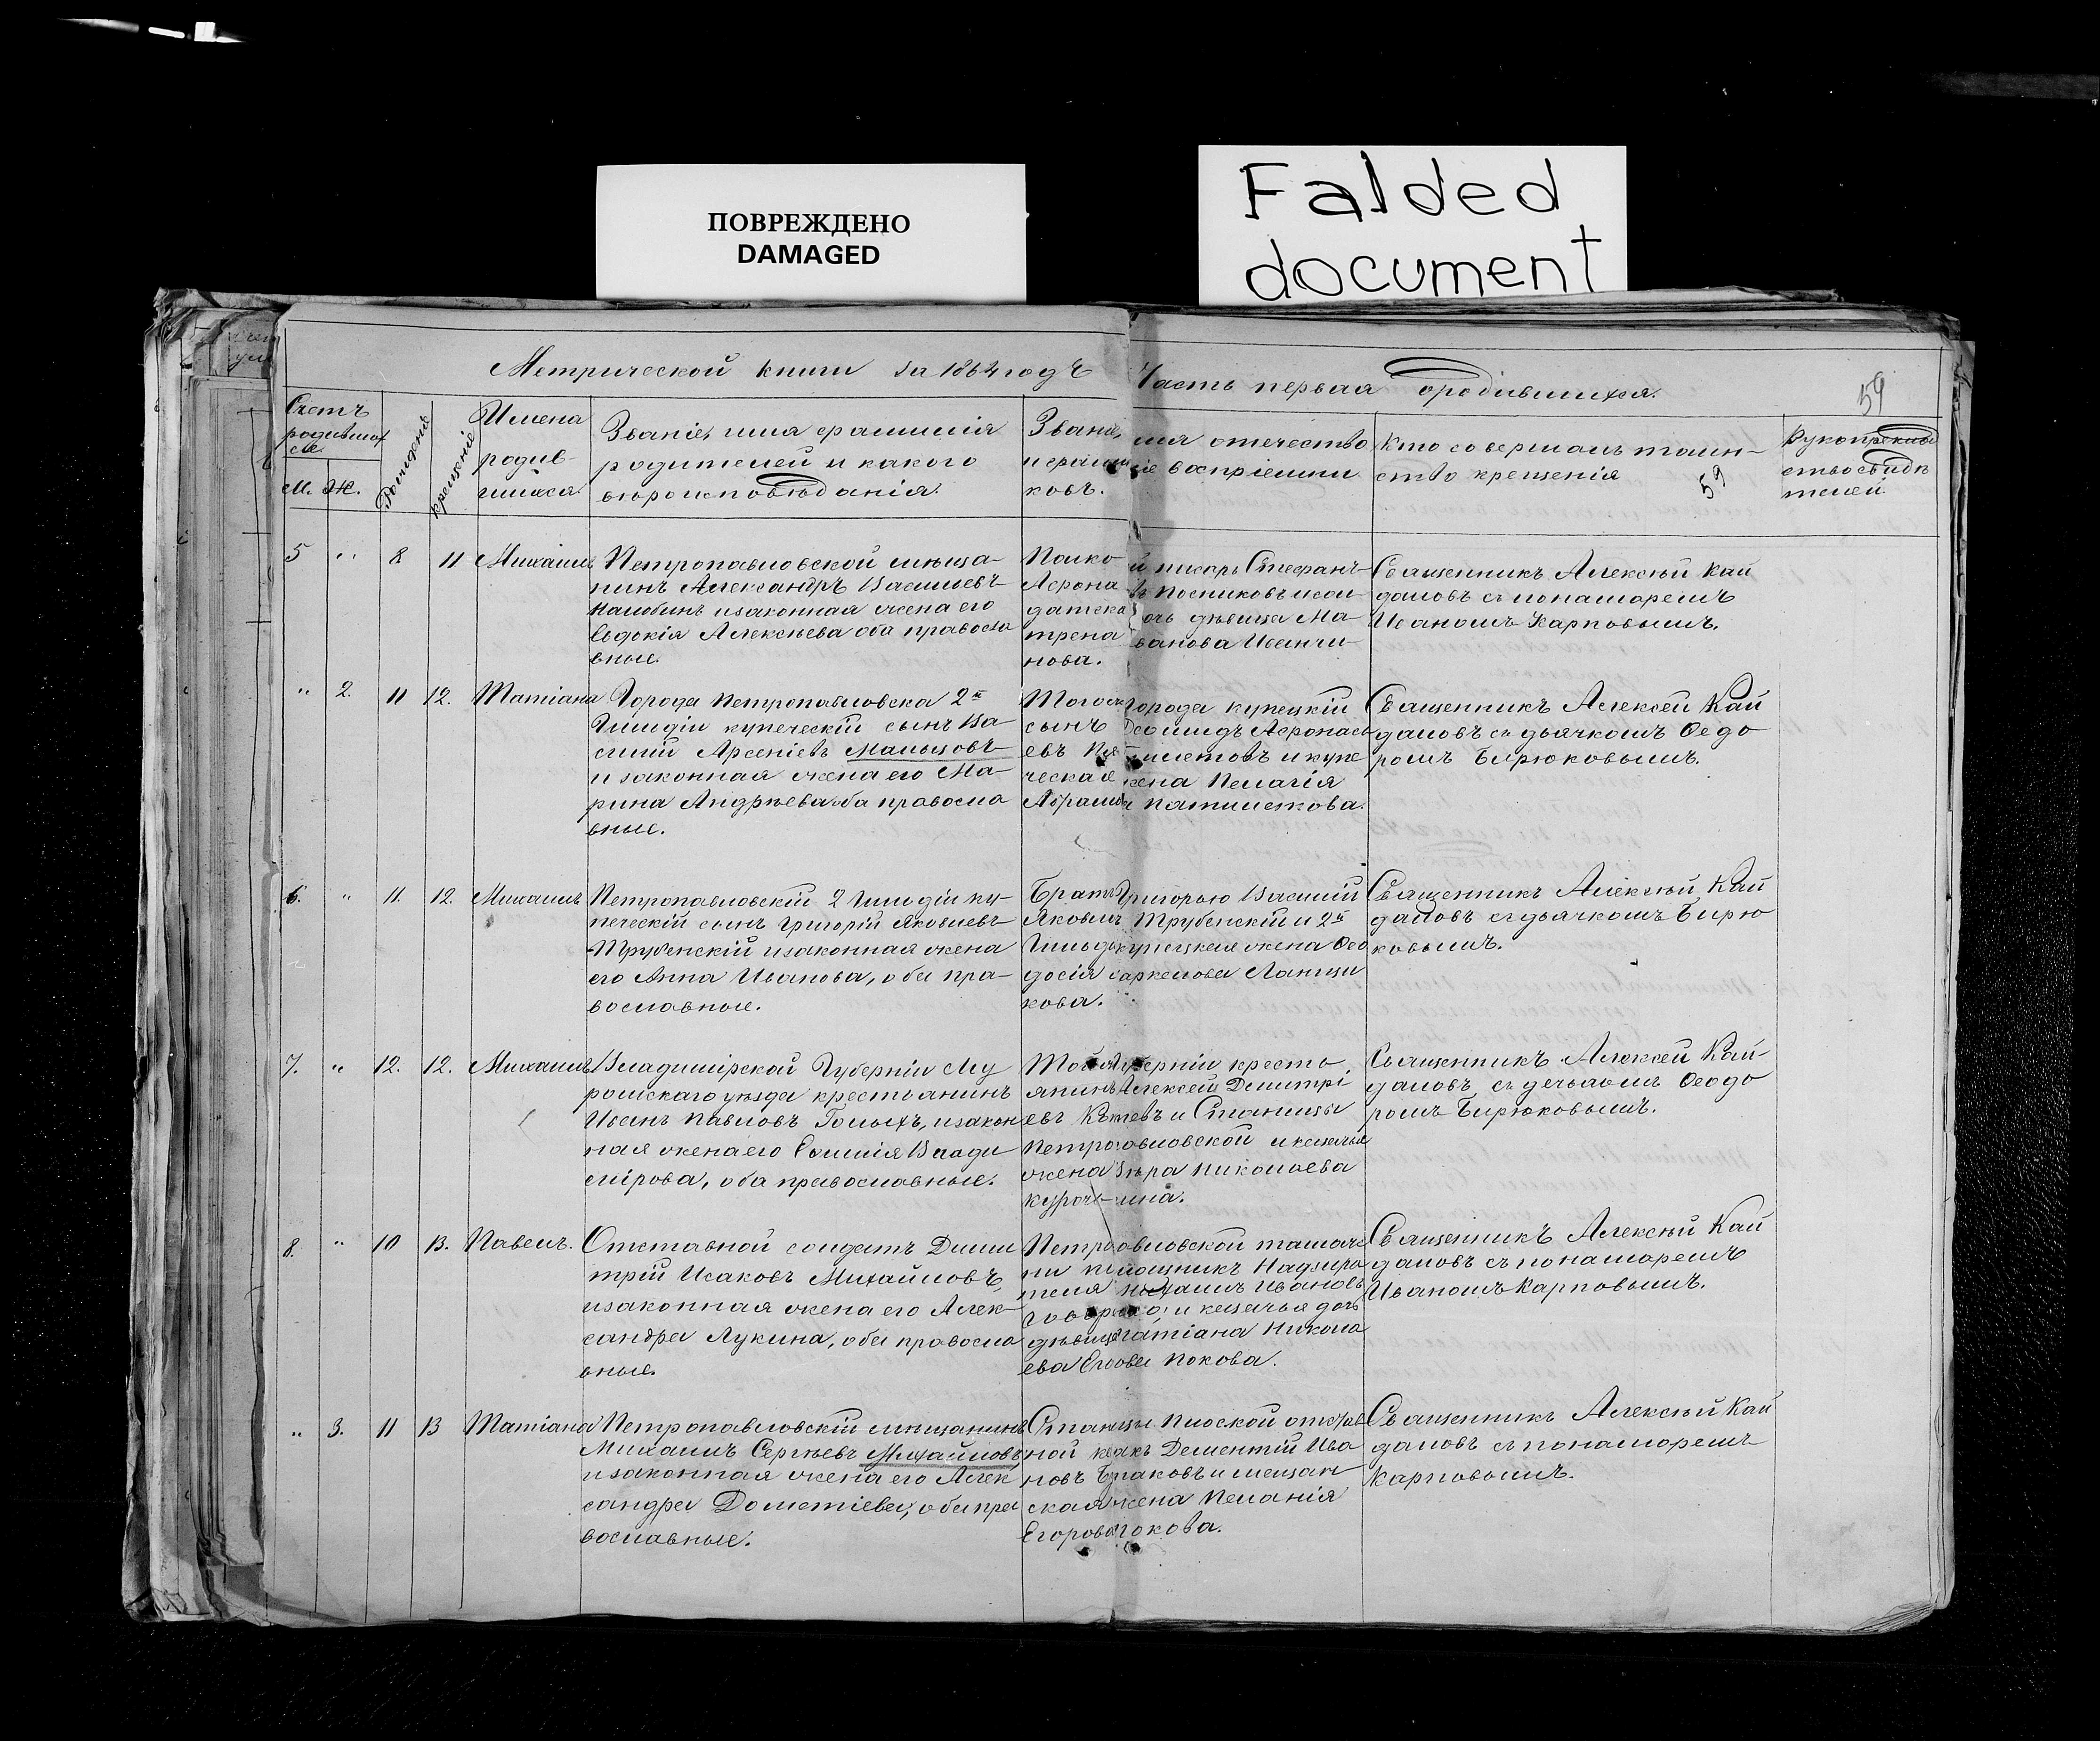 ПОВРЕЖДЕНО
DAMAGED
Falded
document
Метрической книги за 1864 годъ
Часть первая о родившихся.
59
Счетъ
родивших
ся.
М. Ж.
Рожденія
крещенія
Имена
родив-
шихся.
Званіе, имя фамилія
родителей и какого
вѣроисповѣданія.
Званіе, имя отечество
и фамиліе воспріемни
ковъ.
Кто совершалъ таин-
ство крещенія
59
Рукоприклад
ство свидѣ
телей
5 " 8 11 Михаилъ
Петропавловской мѣща-
нинъ Александръ Васильевъ
и законная жена его
Евдокія Алексѣева оба правосла
вные.
писарь Стефанъ
дѣвица Ма-
трена
нова.
Священникъ Алексѣй Кай
даловъ съ понамаремъ
Иваномъ Карповымъ.
" 2. 11 12. Татіана
Города Петропавловска 2й
Гильдіи купеческій сынъ Ва-
силій Арсеніевъ Мальцовъ
и законная жена его Ма-
рина Андрѣева оба правосла
вные.
Тогоже города купецкій
сынъ
ческая жена Пелагія
Священникъ Алексей Кай
даловъ съ дьячкомъ Ѳедо
ромъ Бирюковымъ.
6. " 11. 12 Михаилъ
Петропавловскій 2 Гильдіи ку-
печескій сынъ Григорій Яковлевъ
Трубенскій и законная жена
его Анна Иванова, оба пра-
вославные.
Братъ Григорью Василій
Яковлевъ Трубенскій и 2й
Гильдіи купецкая жена Ѳео
досія
кова.
Священникъ Алексѣй Кай
даловъ съ дьячкомъ Бирю
ковымъ.
7. " 12. 12. Михаилъ
Владимірской Губерніи Му
ромскаго уѣзда крестьянинъ
Иванъ Павловъ Голыхъ, и закон
ная жена его Емилія Влади
мірова, оба православные.
губерніи кресть
янинъ Алексей Димитрі
евъ и Станицы
Петропавловской и казачья
жена Вѣра Николаева
Священникъ Алексей Кай-
даловъ съ Ѳеодо
ромъ Бирюковымъ.
8. " 10 13. Павелъ.
Отставной солдатъ Дими
трій Исаковъ Михайловъ,
и законная жена его Алек-
сандра Лукина, оба правосла
вные.
Петропавловской таможе
ни помощникъ Надзира
теля Ивановъ
и казачья дочь
дѣвица Татіана Никола
ева
Священникъ Алексѣй Кай
даловъ съ понамаремъ
Иваномъ Карповымъ.
" 3. 11 13 Татіана
Петропавловскій мѣщанинъ
Михаилъ Сергѣевъ Михайловъ,
и законная жена его Алек
сандра Дометіева, оба пра
вославные.
Станицы отстав
ной казакъ Дементій Ива
новъ и мещан
ская жена Пелагія
Егорова
Священникъ Алексѣй Кай
даловъ съ понамаремъ
Карповымъ.